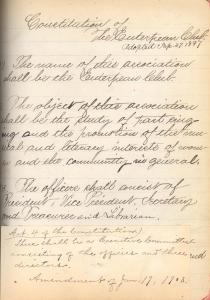 Constitution of
The Euterpean Club
Adopted Sep. 27 1897
The name of this association
shall be the Euterpean Club.
The object of this association
shall be the study of part sing-
ing and the promotion of the mu-
sical and literary interests of wom-
en and the community in general.
The officers shall consist of
President, Vice President, Secretary
and Treasurer and a Librarian.
Art. 4 of the Constitution)
there shall be a Executive Committee
consisting of the officers and three
directors.
Amendment of Jan 17, 1903.